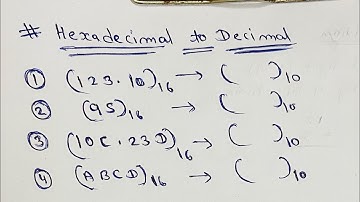 # Hexadecimal to Decimal
① (123.10)₁₆ → (   )₁₀
② (95)₁₆ → (   )₁₀
③ (10C.23D)₁₆ → (   )₁₀
④ (ABCD)₁₆ → (   )₁₀